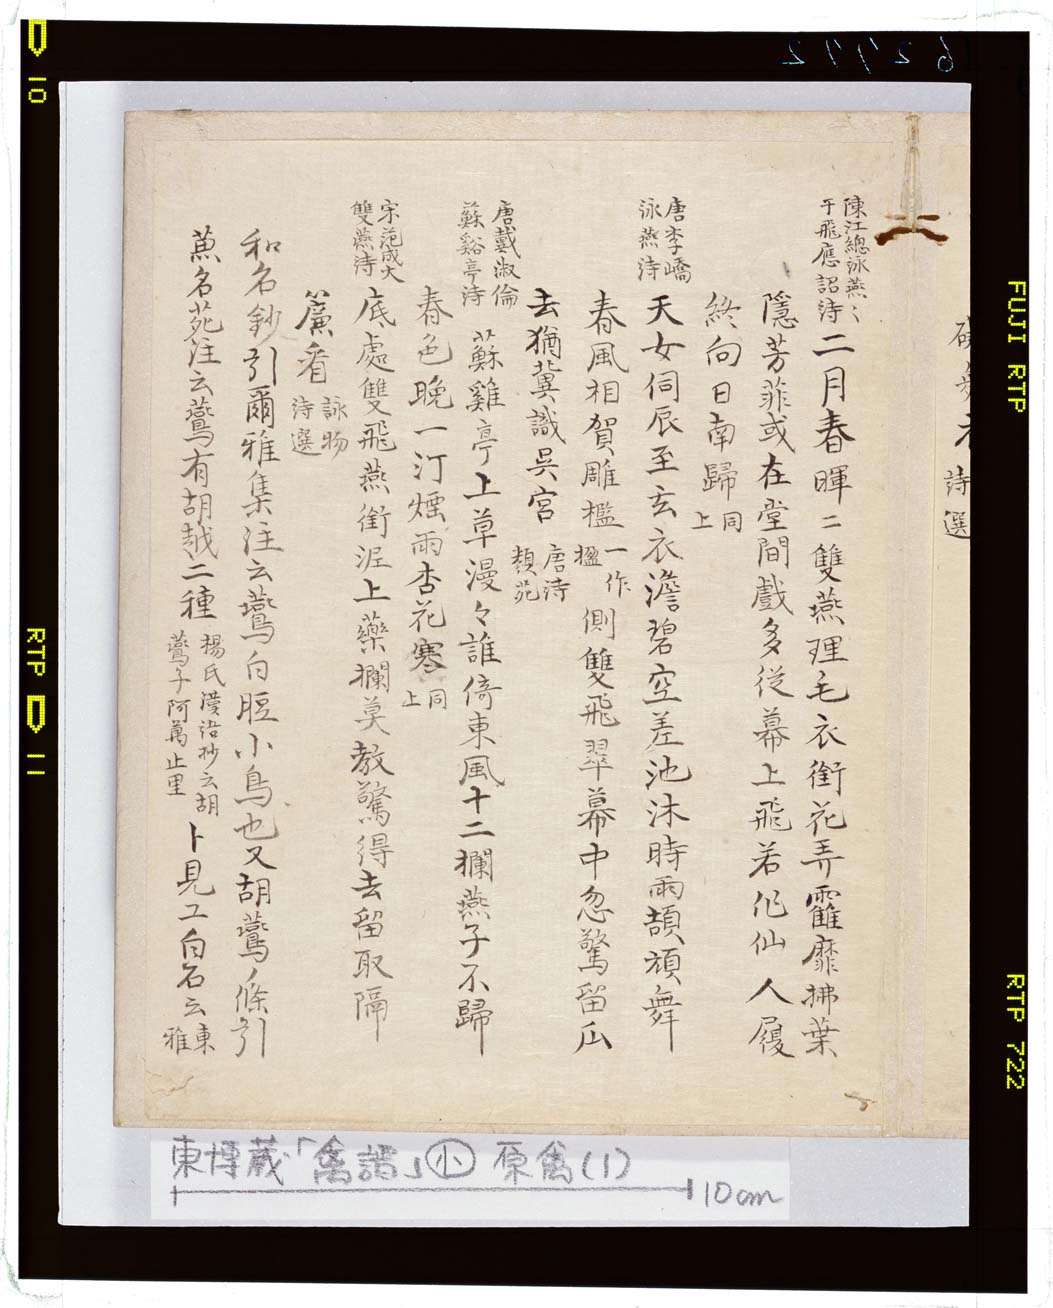 詩選
陳江總泳燕〻
于飛應詔詩
二月春暉〻雙燕理毛衣銜花弄靃靡拂葉
隱芳菲或在堂間戲多従幕上飛若作仙人履
終向日南歸 同上
唐李嶠
泳燕詩
天女伺辰至玄衣澹碧空差池沐時雨頡頏舞
春風相賀雕檻 一作楹 側雙飛翠幕中忽驚留瓜
去猶冀識吳宮 唐詩類苑
唐戴淑倫
蘇谿亭詩
蘇雞亭上草漫々誰倚東風十二欄燕子不歸
春色晩一汀煙雨杏花寒 同上
宋范成大
雙燕詩
底處雙飛燕銜泥上藥欄莫教驚得去留取隔
簾看 詠物詩選
和名鈔引爾雅集注云鷰白脰小鳥也又胡鷰ノ條引
蒐名苑注云鷰有胡越二種 楊氏漢语抄云胡鷰子阿萬止里 ト見エ白石云東雅
東博蔵「禽譜」小 原禽(1)
10cm
62772
10
RTP 11
FUJI RTP
RTP 722